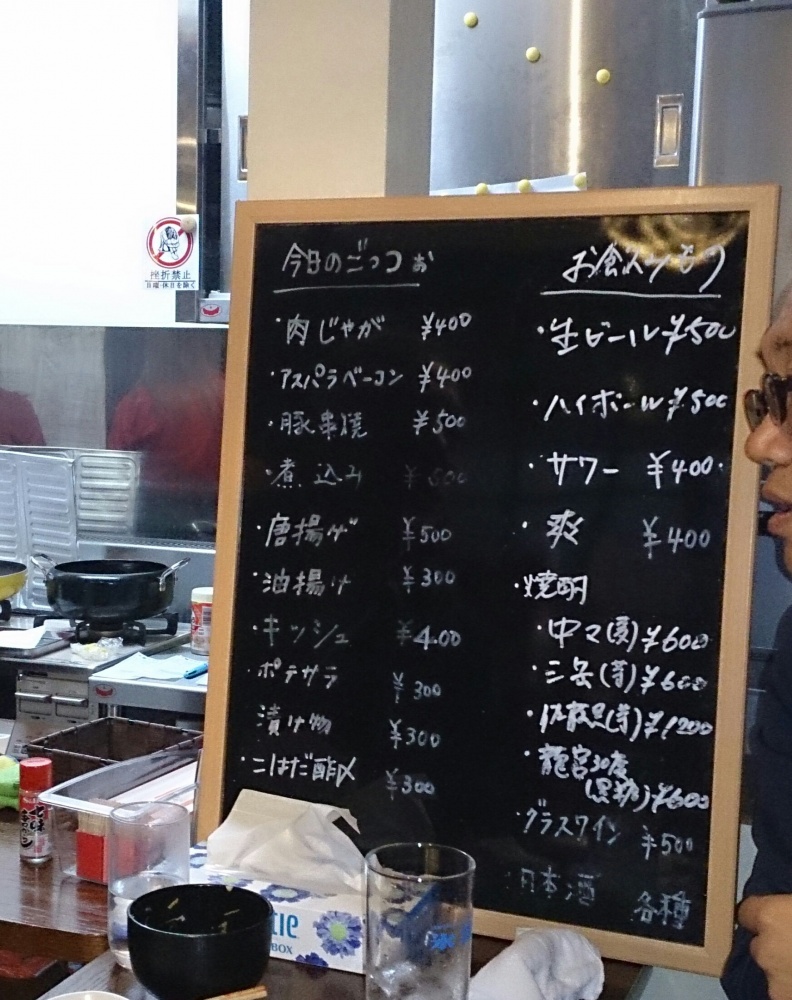 今日のごっつぉ
・肉じゃが ¥400
・アスパラベーコン ¥400
・豚串焼 ¥500
・煮込み ¥500
・唐揚げ ¥500
・油揚げ ¥300
・キッシュ ¥400
・ポテサラ ¥300
・漬け物 ¥300
・こはだ酢〆 ¥300
お飲みもの
・生ビール ¥500
・ハイボール ¥500
・サワー ¥400
・爽 ¥400
・焼酎
・中々(麦) ¥600
・三岳(芋) ¥600
・佐藤黒(芋) ¥1200
・龍宮30度
(黒糖) ¥600
・グラスワイン ¥500
・日本酒 各種
挫折禁止
日曜・休日を除く
七味
BOX